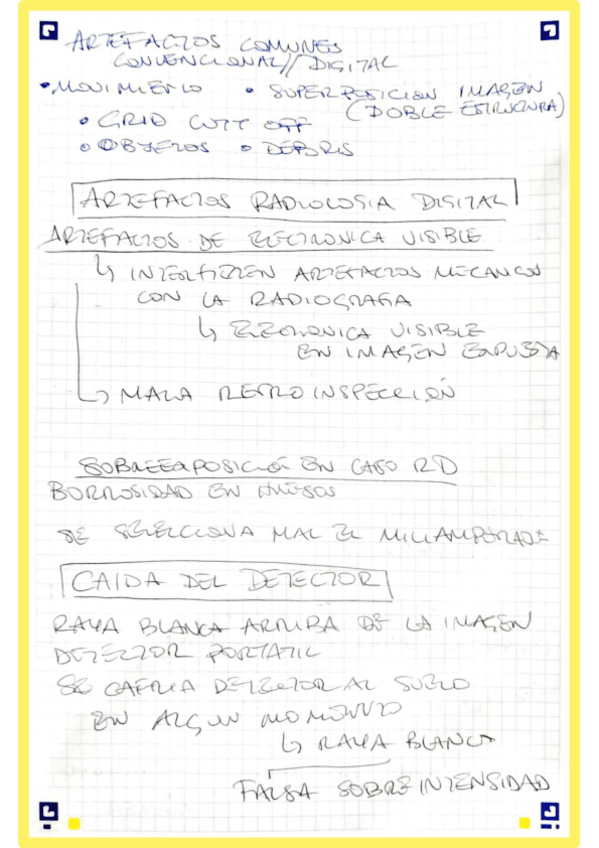 ARTEFACTOS COMUNES
CONVENCIONAL // DIGITAL
• MOVIMIENTO • SUPERPOSICION IMAGEN
(DOBLE ESTRUCTURA)
• GRID CUTT OFF
• OBJETOS • DEBRIS
ARTEFACTOS RADIOLOGIA DIGITAL
ARTEFACTOS DE ELECTRONICA VISIBLE
↳ INTERFIEREN ARTEFACTOS MECANICOS
CON LA RADIOGRAFIA
↳ ELECTRONICA VISIBLE
EN IMAGEN EXPUESTA
↳ MALA RETROINSPECCIÓN
SOBREEXPOSICIÓN EN CASO RD
BORROSIDAD EN HUESOS
SE SELECCIONA MAL EL MILIAMPERAJE
CAIDA DEL DETECTOR
RAYA BLANCA ARRIBA DE LA IMAGEN
DETECTOR PORTATIL
SE CAERIA DETECTOR AL SUELO
EN ALGUN MOMENTO
↳ RAYA BLANCA
FALSA SOBREINTENSIDAD